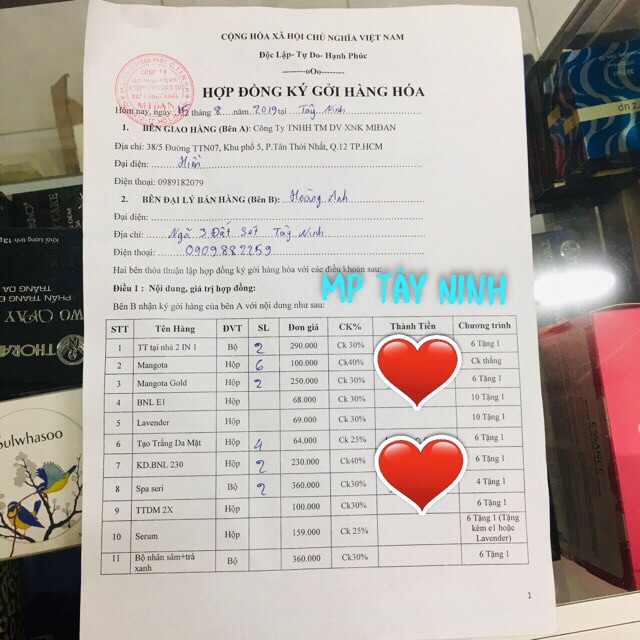 CỘNG HÒA XÃ HỘI CHỦ NGHĨA VIỆT NAM
Độc Lập- Tự Do- Hạnh Phúc
--------oOo--------
HỢP ĐỒNG KÝ GỞI HÀNG HÓA
CÔNG TY
MIDAN
Hôm nay, ngày 15 tháng 8 năm 2019 tại Tây Ninh
1. BÊN GIAO HÀNG (Bên A): Công Ty TNHH TM DV XNK MIĐAN
Địa chỉ: 38/5 Đường TTN07, Khu phố 5, P.Tân Thới Nhất, Q.12 TP.HCM
Đại diện: Hiền
Điện thoại: 0989182079
2. BÊN ĐẠI LÝ BÁN HÀNG (Bên B): Hoàng Anh
Đại diện:
Địa chỉ: Ngã 3 Đất Sét Tây Ninh
Điện thoại: 0909882259
Hai bên thỏa thuận lập hợp đồng ký gởi hàng hóa với các điều khoản sau:
MP TÂY NINH
Điều 1 : Nội dung, giá trị hợp đồng:
Bên B nhận ký gởi hàng của bên A với nội dung như sau:
STT Tên Hàng ĐVT SL Đơn giá CK% Thành Tiền Chương trình
1 TT tại nhà 2 IN 1 Bộ 2 290.000 Ck 30% 6 Tặng 1
2 Mangota Hộp 6 100.000 Ck40% Ck thẳng
3 Mangota Gold Hộp 2 250.000 Ck 30% 6 Tặng 1
4 BNL E1 Hộp 68.000 Ck 30% 10 Tặng 1
5 Lavender Hộp 69.000 Ck 30% 10 Tặng 1
6 Tạo Trắng Da Mặt Hộp 4 64.000 Ck 25% 6 Tặng 1
7 KD.BNL 230 Hộp 2 230.000 Ck40% 6 Tặng 1
8 Spa seri Bộ 2 360.000 Ck 30% 4 Tặng 1
9 TTDM 2X Hộp 100.000 Ck 30% 6 Tặng 1
10 Serum Hộp 159.000 Ck 25% 6 Tặng 1 (Tặng kèm e1 hoặc Lavender)
11 Bộ nhân sâm+trà xanh Bộ 360.000 Ck30% 6 Tặng 1
1
Khối lượng tịnh
PHẤN TRANG ĐI
TRẮNG DA
THORA
Sulwhasoo
ESSANCE
dn.z